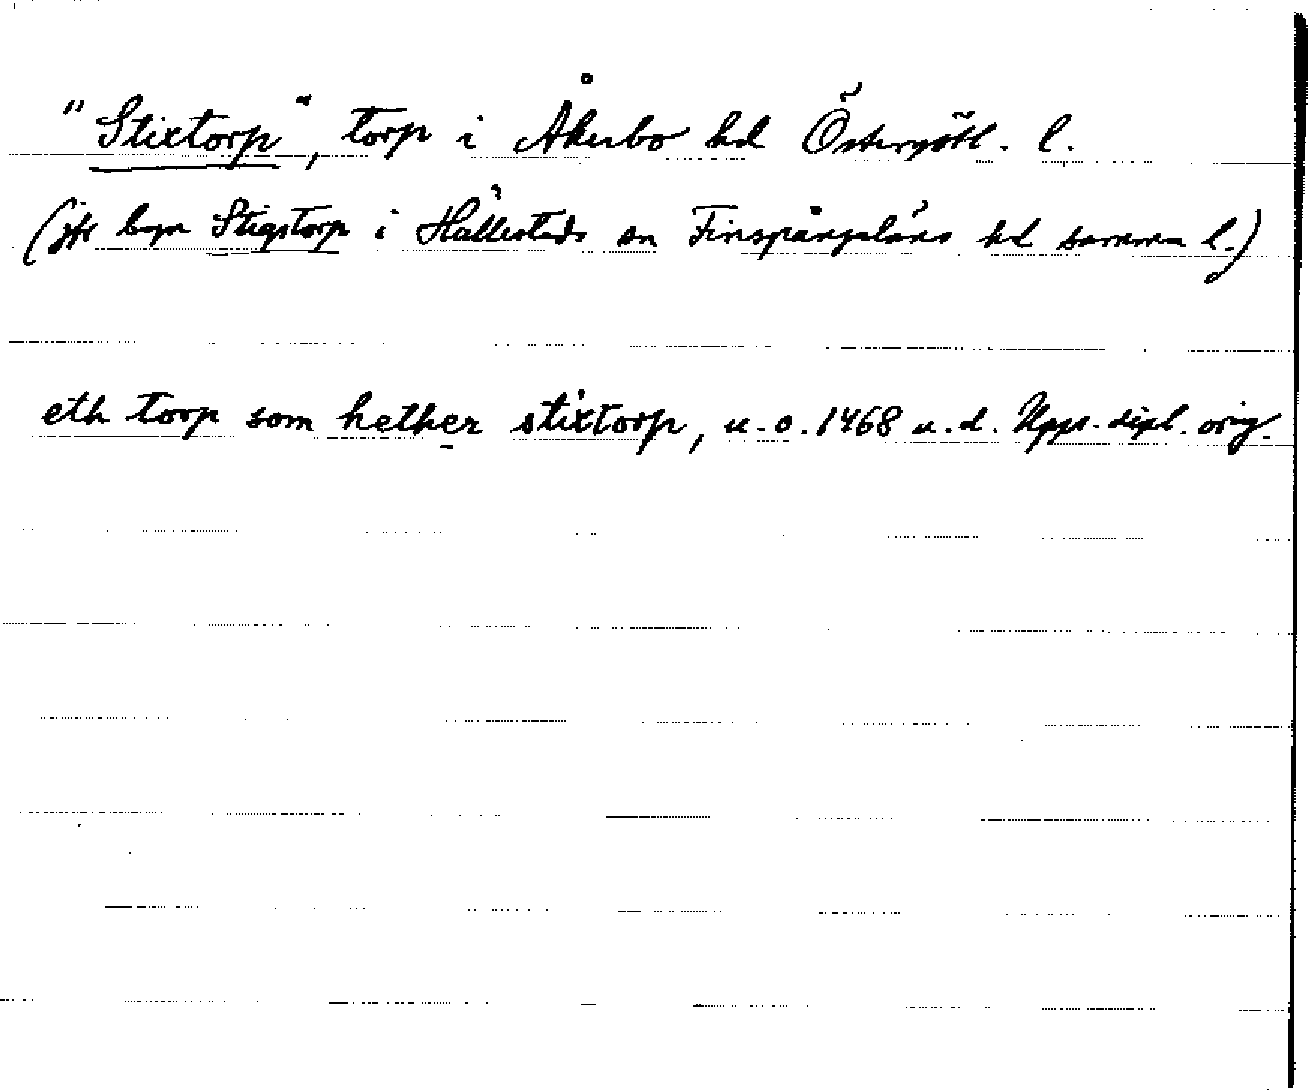 "Stixtorp", torp i Åkerbo hd Östergötl. l.
(jfr byn Stigstorp i Hällestads sn Finspångaläns hd samma l.)
eth torp som hether stixtorp, u.o. 1468 u.d. Upps. dipl. orig.